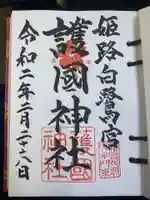 姫路白鷺宮
護國神社
令和二年二月二十八日
護國
神社